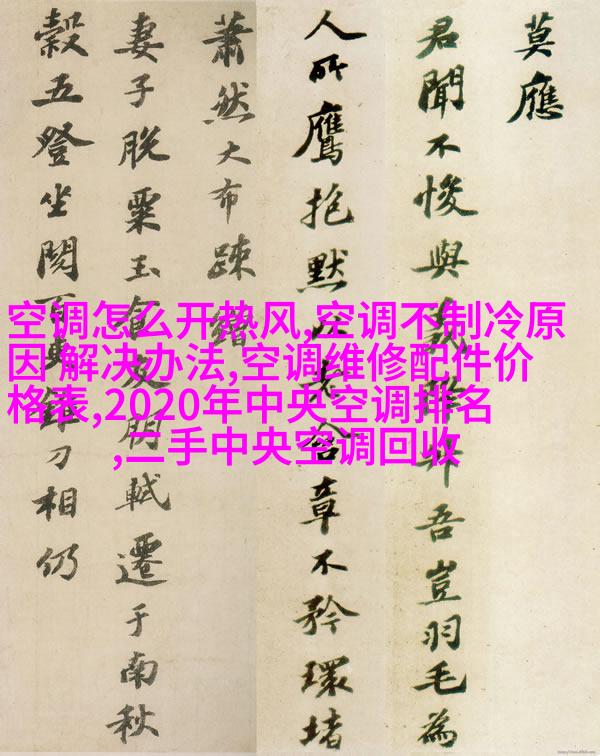 莫應
君聞不悛與義降升吾豈羽毛為
人所鷹抱默以老含章不矜環堵
蕭然大布疎糲
妻子脫粟玉食及門軾遷于南秋
穀五登坐閱百刀相仍
空调怎么开热风,空调不制冷原
因 解决办法,空调维修配件价
格表,2020年中央空调排名
,二手中央空调回收